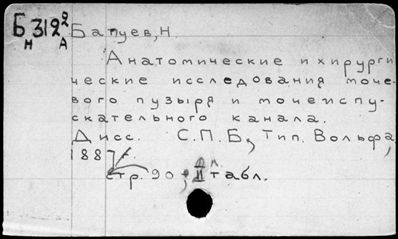 Б 312²
н А
Батуев, Н.
Анатомические и хирурги
ческие исследования моче-
вого пузыря и мочеиспу-
скательного канала.
Дисс. С.П.Б., Тип. Вольфа,
1887.
стр. 90, II табл.